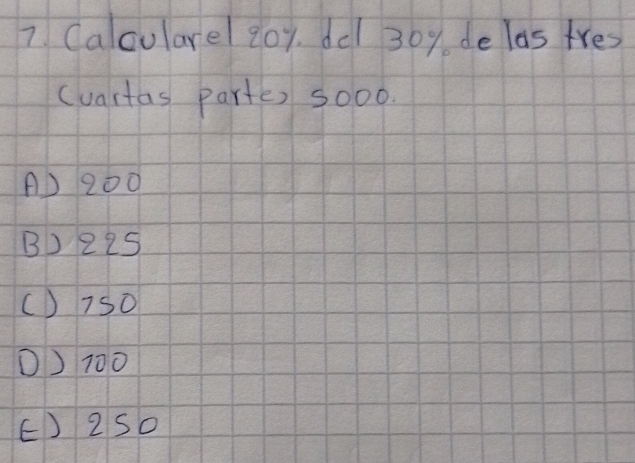 7. Calcular el 20% del 30% de las tres
cuartas partes 5000.
A) 200
B) 225
C) 150
D) 100
E) 250